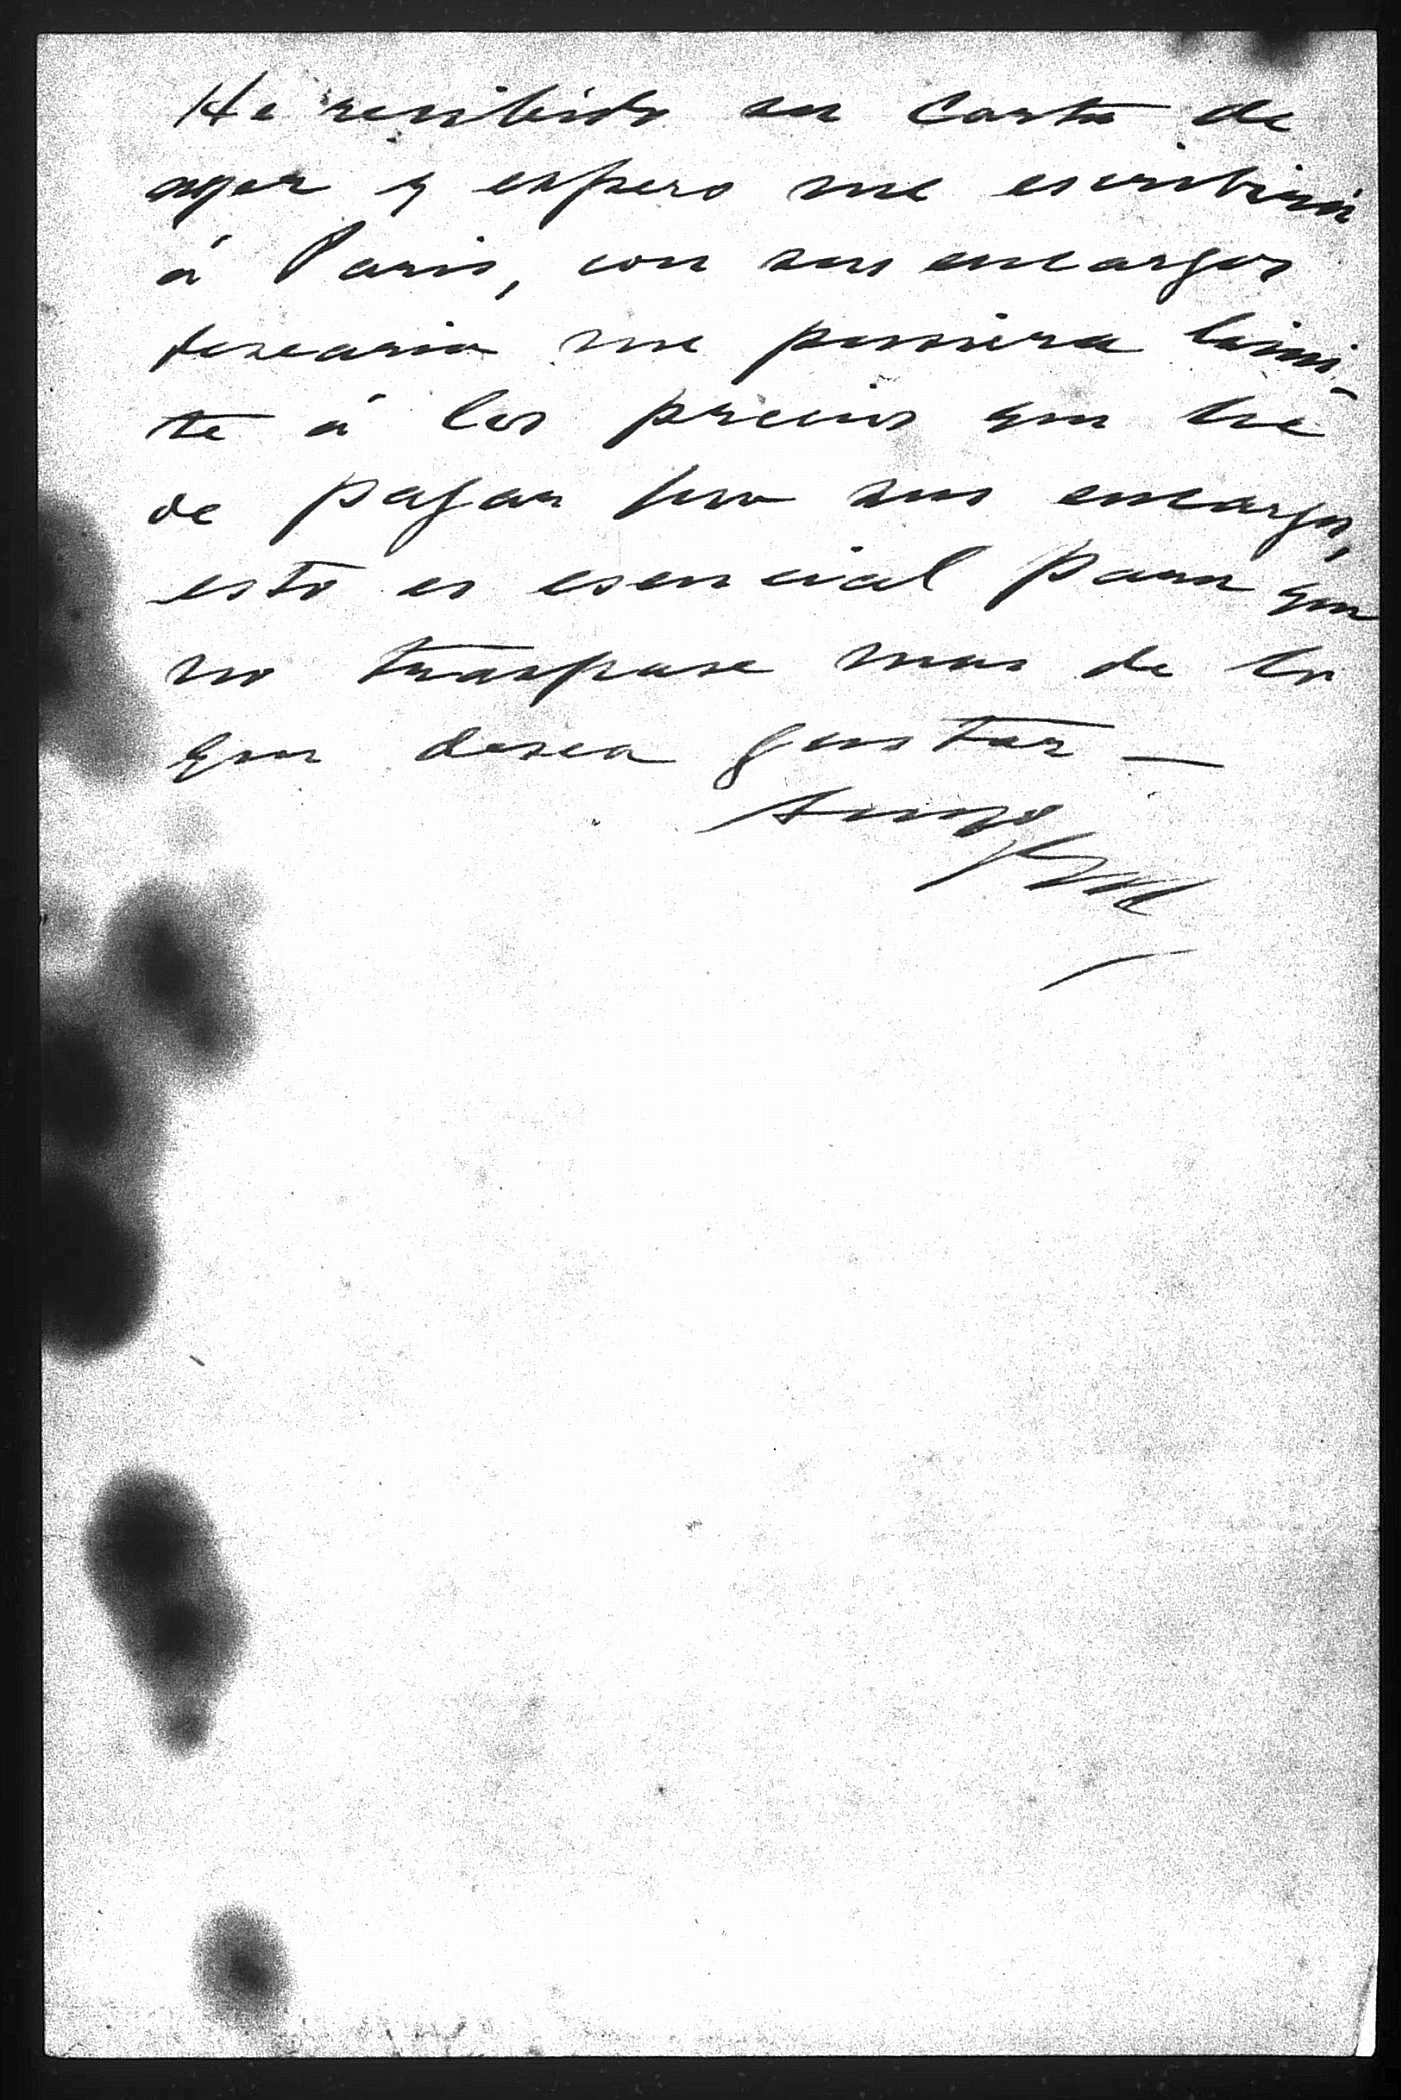 He recibido su carta de
ayer y espero me escribirá
á Paris, con sus encargos
desearia me pusiera limi-
te á los precios que he
de pagar por sus encargos,
esto es esencial para que
no traspase mas de lo
que desea gastar —